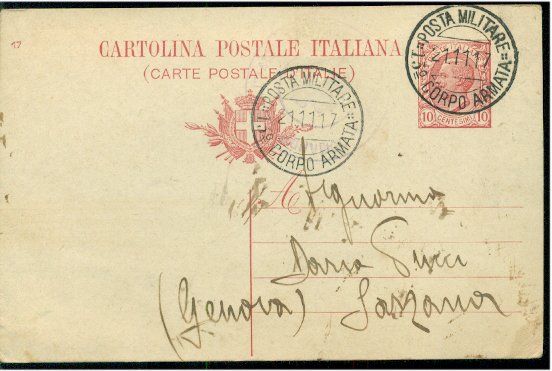 17
CARTOLINA POSTALE ITALIANA
(CARTE POSTALE D'ITALIE)
POSTA MILITARE
21.11.17
CORPO ARMATA
POSTA MILITARE
21.11.17
CORPO ARMATA
10 CENTESIMI 10
A Signorina
Daria Pucci
(Genova) Sarzana